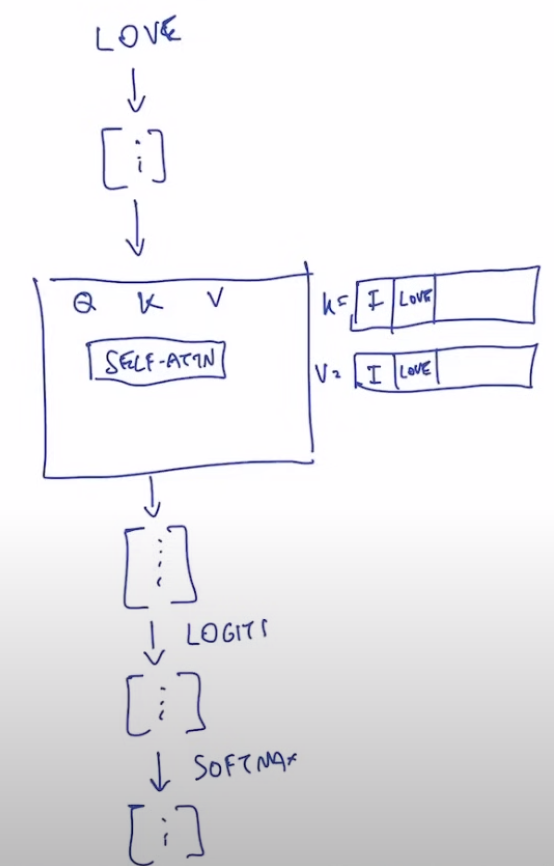 LOVE
Q K V
SELF-ATTN
K= I LOVE
V= I LOVE
LOGITS
SOFTMAX